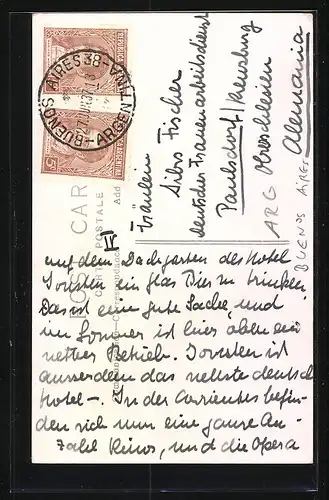 BUENOS AIRES 38
ARGENTINA
REPUBLICA ARGENTINA
5
POST CARD
CARTE POSTALE
Correspondance
Add
II
Fräulein
Fischer
deutscher Frauenarbeitsdienst
Paulsdorf/Kreuzburg
Oberschlesien
Alemania
ARG
BUENOS AIRES
auf dem Dachgarten des Hotel
ein Glas Bier zu trinken.
Das ist eine gute Sache, und
im Sommer ist hier oben ein
netter Betrieb. ist
ausserdem das netteste deutsche
Hotel –. In der Corrientes befin-
den sich nun eine ganze An-
zahl Kinos, und die Opera